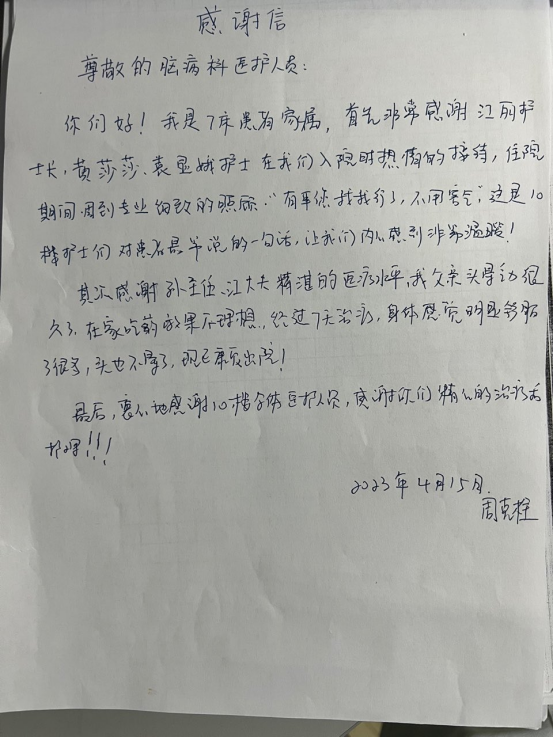 感谢信
尊敬的脑病科医护人员:
你们好！我是7床患者家属，首先非常感谢江丽护
士长，黄莎莎、袁显娥护士在我们入院时热情的接待，住院
期间周到专业细致的照顾."有事您找我行了，不用客气",这是10
楼护士们对患者最常说的一句话，让我们内心感到非常温暖！
其次感谢孙主任、江大夫精湛的医疗水平，我父亲头晕已很
久了，在家吃药效果不理想，经过7天治疗，身体感觉明显舒服
了很多，头也不晕了，现已康复出院！
最后，衷心地感谢10楼全体医护人员，感谢你们精心的治疗和
护理!!!
2023年4月15月.
周克栓